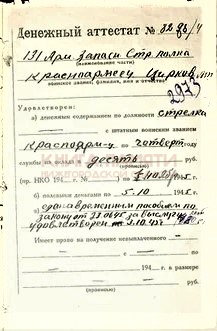 Денежный аттестат № 32
131 Арм. Запасн. Стр. полка
(наименование части)
Красноармеец Цирков
воинское звание, фамилия, имя и отчество
2975
Удовлетворен:
а) денежным содержанием по должности стрелка
с штатным воинским званием
Красноарм-ц четверт
службы на оклад десять
(прописью)
(пр. НКО 194 г. № ) по 1 нояб 1945 г.
б) полевыми деньгами по 5.10 1945 г.
в) единовременным пособием по
закону от 23.06.45 за выслугу лет
удовлетворен 5.10.45 г.
Имеет право на получение невыплаченного
за 194 г. в размере
руб.
(прописью)